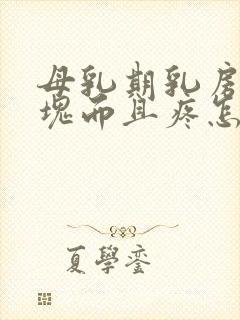 母乳期乳房
块而且疼怎
夏學銮